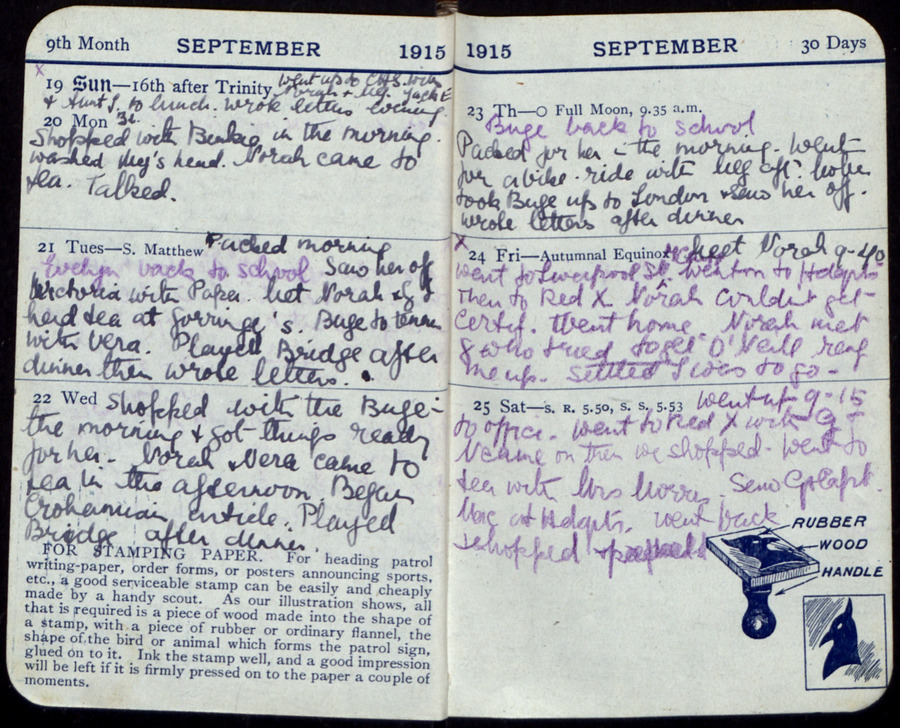 9th Month SEPTEMBER 1915
x
19 Sun—16th after Trinity went up to with
Norah +
+ Aunt J. to lunch. wrote letters evening
20 Mon
Shopped with in the morning.
washed Meg's head. Norah came to
tea. Talked.
21 Tues—S. Matthew Packed morning
Evelyn back to school Saw her off
Victoria with Papa. Met Norah &
had tea at Gorringe's. Buge to tennis
with Vera. Played Bridge after
dinner then wrote letters.
22 Wed Shopped with the Buge in
the morning & got things ready
for her. Norah & Vera came to
tea in the afternoon. Began
Crohamian article. Played
Bridge after dinner.
FOR STAMPING PAPER. For heading patrol
writing-paper, order forms, or posters announcing sports,
etc., a good serviceable stamp can be easily and cheaply
made by a handy scout. As our illustration shows, all
that is required is a piece of wood made into the shape of
a stamp, with a piece of rubber or ordinary flannel, the
shape of the bird or animal which forms the patrol sign,
glued on to it. Ink the stamp well, and a good impression
will be left if it is firmly pressed on to the paper a couple of
moments.
1915 SEPTEMBER 30 Days
23 Th—O Full Moon, 9.35 a.m.
Buge back to school
Packed for her in the morning. Went
for a bike ride with Meg aft:
took Buge up to London & saw her off.
wrote letters after dinner
x
24 Fri—Autumnal Equinox Meet Norah 9-40
went to Liverpool St. Went on to Hdqts
Then to Red X. Norah couldn't get
Certif. Went home. Norah met
G who tried to get O'Neill rang
me up. Settled I was to go.
25 Sat—S. R. 5.50, S. S. 5.53 went up 9-15
to office. Went to Red X with G &
N came on then we shopped. Went to
tea with Mrs Morris. Saw
Mac at Hdqts. went back
& shopped +
RUBBER
WOOD
HANDLE